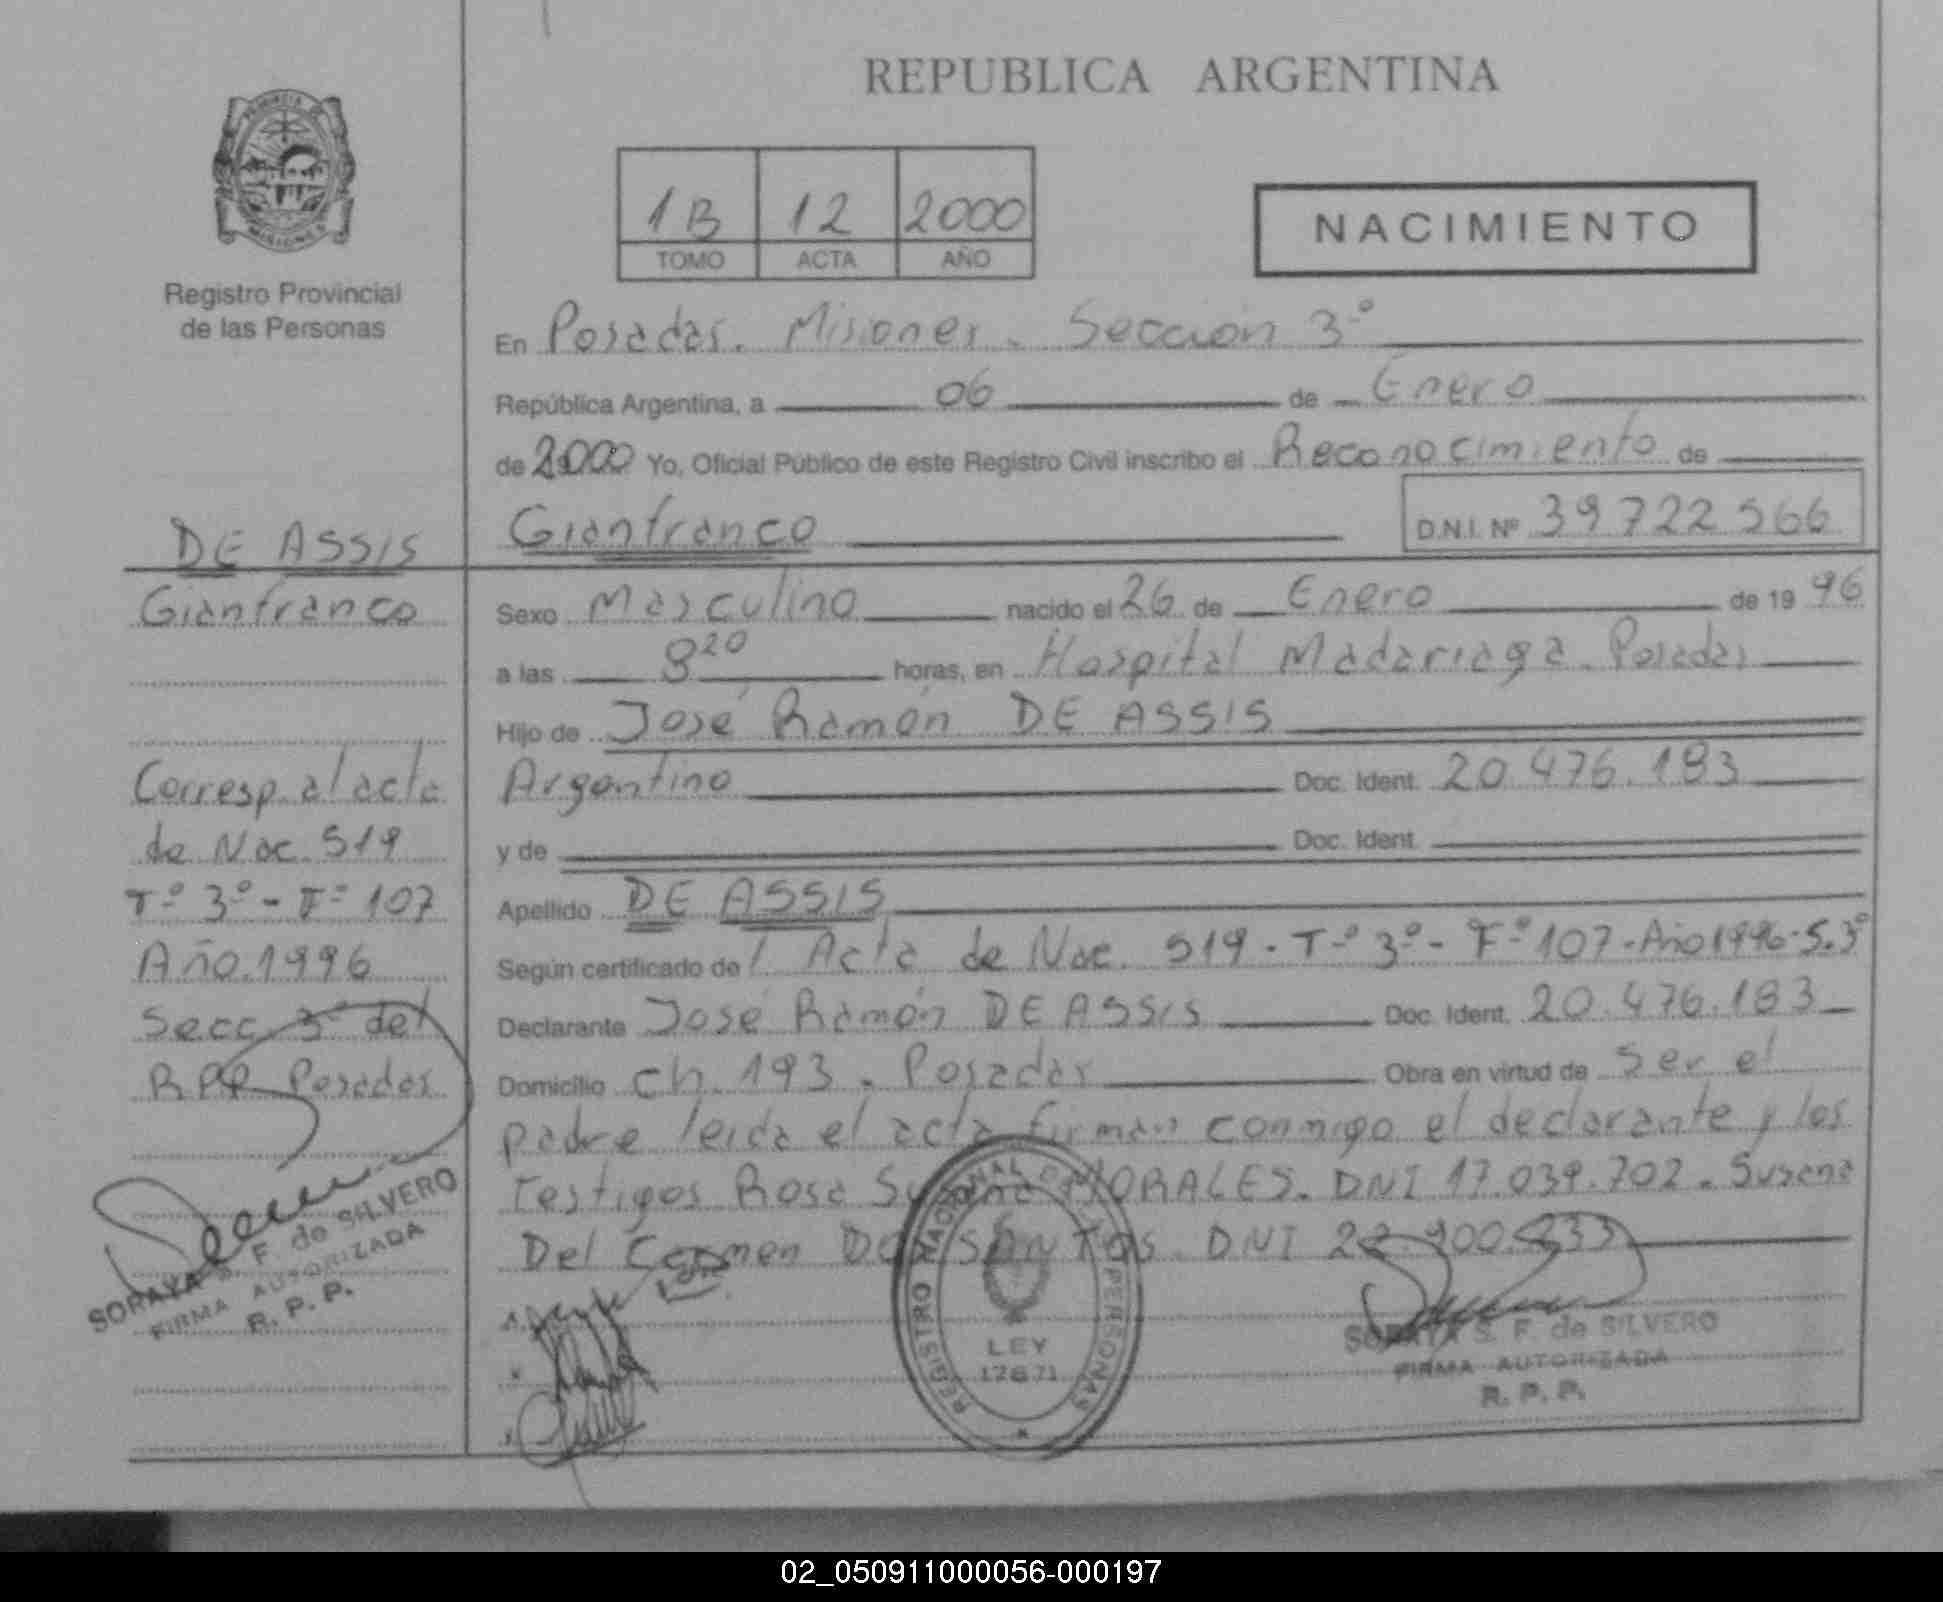 REPUBLICA ARGENTINA
PROVINCIA DE
MISIONES
Registro Provincial
de las Personas
1B 12 2000
TOMO ACTA AÑO
NACIMIENTO
En Posadas. Misiones. Sección 3º
República Argentina, a 06 de Enero
de 2000 Yo, Oficial Público de este Registro Civil inscribo el Reconocimiento de
Gianfranco D.N.I. Nº 39722566
DE ASSIS
Gianfranco
Corresp. al acta
de Nac. 519
Tº 3º - Fº 107
Año 1996
Secc. 3º del
RPP Posadas
SORAYA S. F. de SILVERO
FIRMA AUTORIZADA
R. P. P.
Sexo Masculino nacido el 26 de Enero de 19 96
a las 8 20 horas, en Hospital Madariaga. Posadas
Hijo de José Ramón DE ASSIS
Argentino Doc. Ident. 20.476.183
y de Doc. Ident.
Apellido DE ASSIS
Según certificado de / Acta de Nac. 519 - Tº 3º - Fº 107 - Año 1996 - S. 3º
Declarante José Ramón DE ASSIS Doc. Ident. 20.476.183
Domicilio ch. 193. Posadas Obra en virtud de ser el
padre leida el acta firman conmigo el declarante y los
Testigos Rosa Susana MORALES. DNI 17.039.702. Susana
Del Carmen DOS SANTOS. DNI
REGISTRO NACIONAL DE LAS PERSONAS
LEY
17671
SORAYA S. F. de SILVERO
FIRMA AUTORIZADA
R. P. P.
02_050911000056-000197